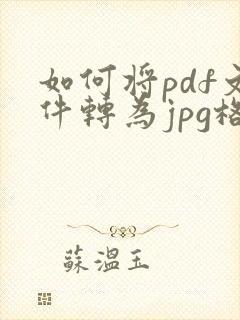 如何将pdf文
件轉為jpg格
蘇溫玉